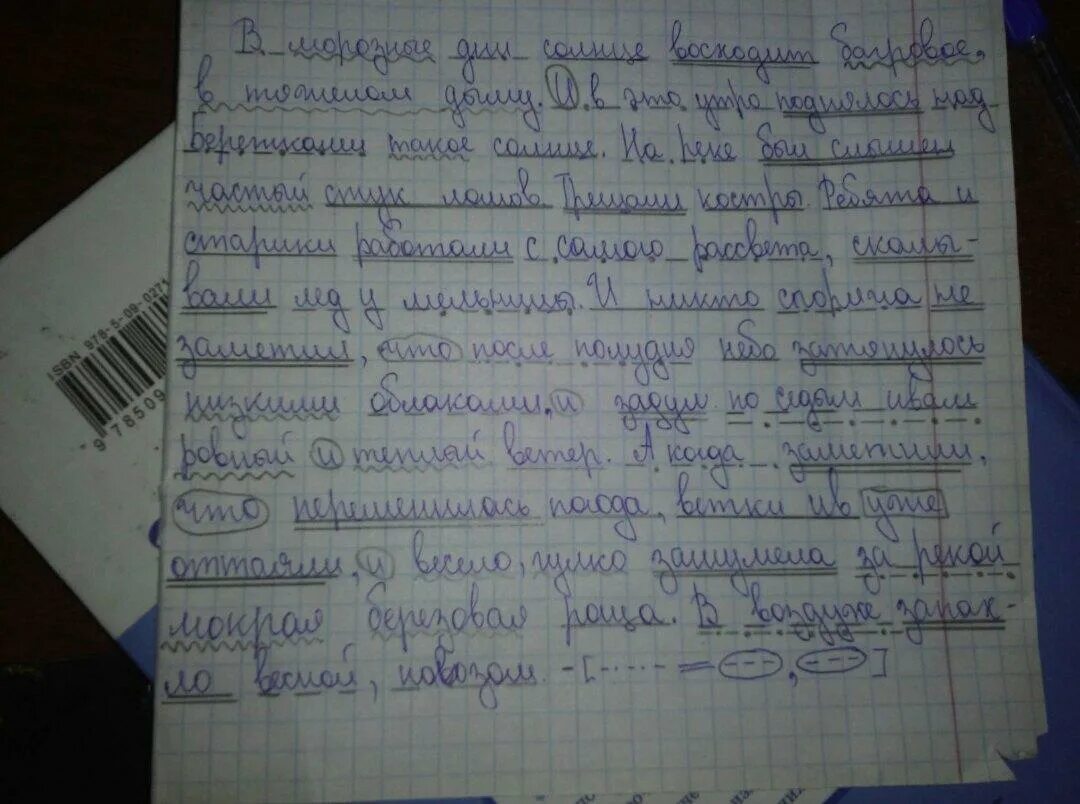 В морозные дни солнце восходит багровое,
в тяжелом дыму. И в это утро поднялось над
березками такое солнце. На реке был слышен
частый стук ломов. Трещали костры. Ребята и
старики работали с самого рассвета, скалы-
вали лед у мельницы. И никто сгоряча не
заметил, что после полудня небо затянулось
низкими облаками, и задул по седым ивам
ровный и теплый ветер. А когда заметили,
что переменилась погода, ветки ив уже
оттаяли, и весело, гулко зашумела за рекой
мокрая березовая роща. В воздухе запах-
ло весной, навозом. -[ ..... = (---), (---)]
ISBN 978-5-09-0271
9 78509